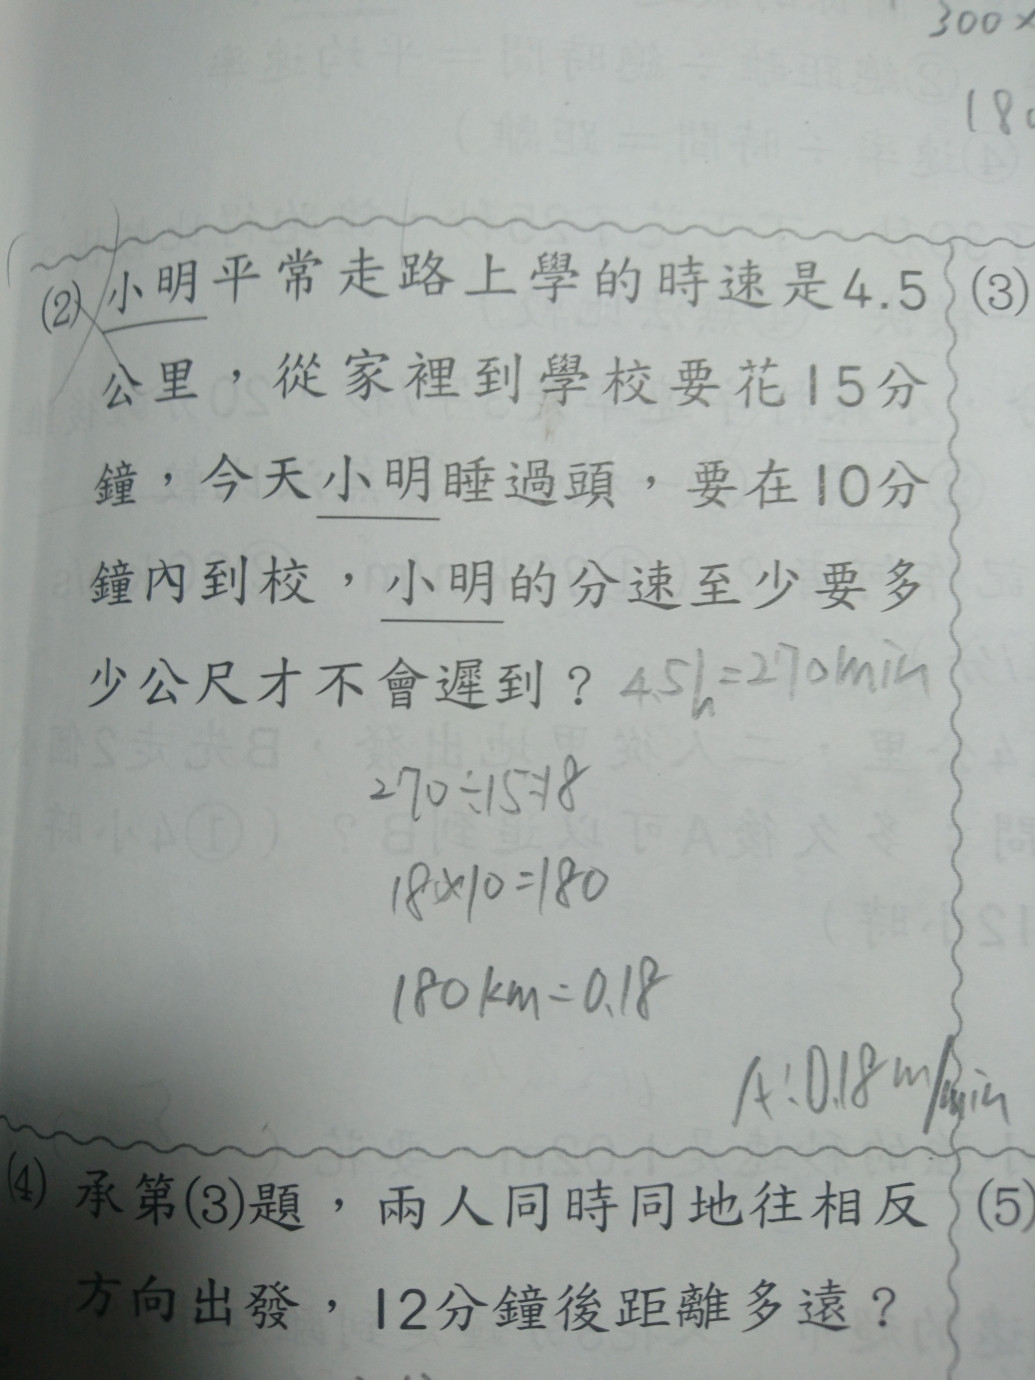 300×
180
(2) 小明平常走路上學的時速是4.5
公里，從家裡到學校要花15分
鐘，今天小明睡過頭，要在10分
鐘內到校，小明的分速至少要多
少公尺才不會遲到？ 4.5h=270min
270÷15=18
18×10=180
180km=0.18
A:0.18m/min
(3)
(4) 承第(3)題，兩人同時同地往相反
方向出發，12分鐘後距離多遠？
(5)